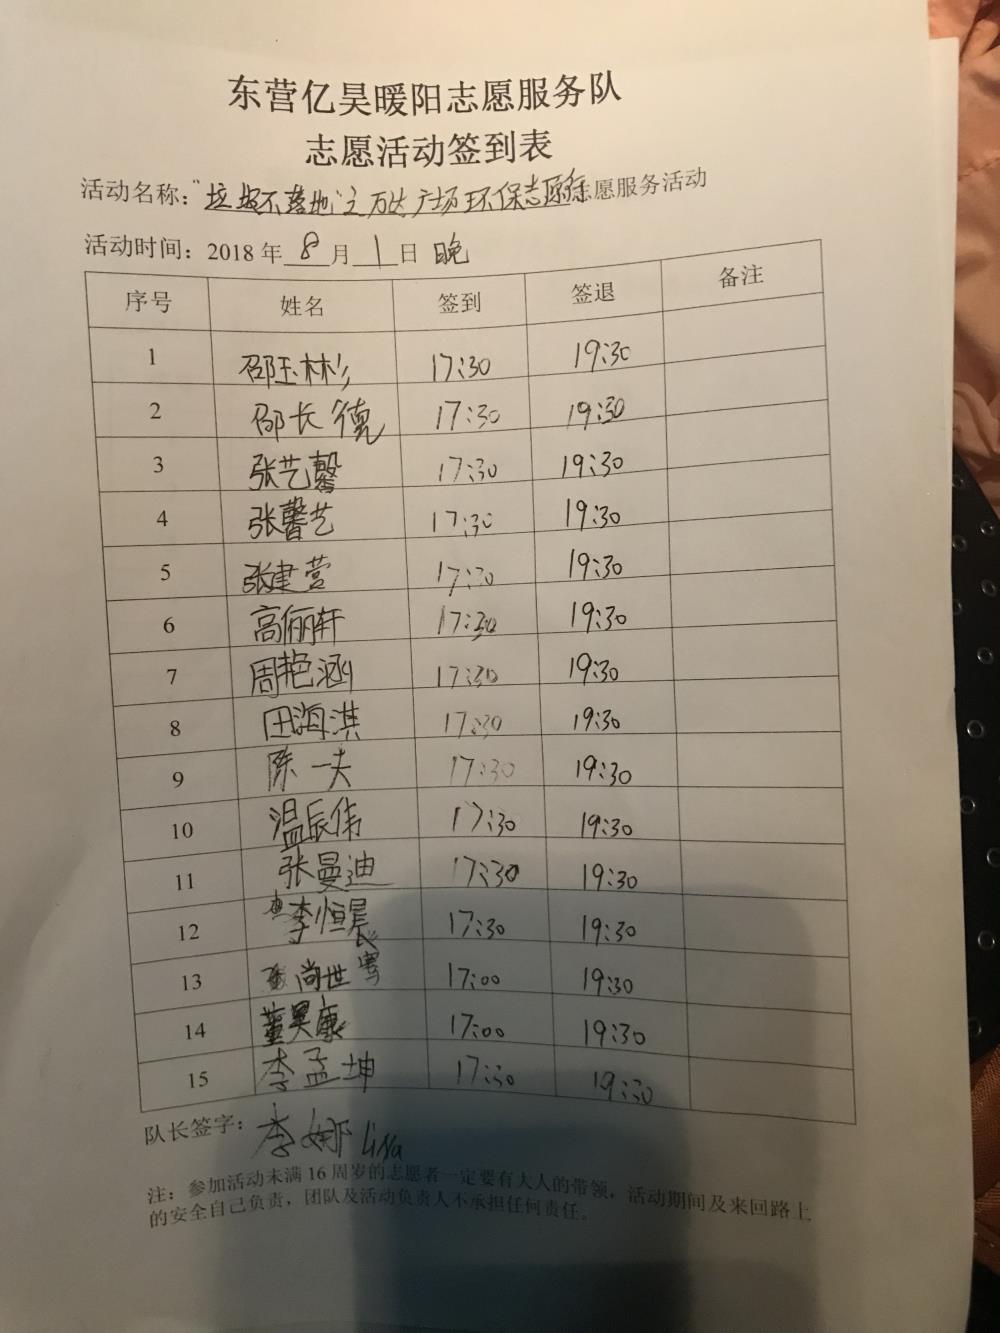 东营亿昊暖阳志愿服务队
志愿活动签到表
活动名称："垃圾不落地"之万达广场环保志愿行志愿服务活动
活动时间：2018年8月1日晚
序号 姓名 签到 签退 备注
1 邵玉彬 17:30 19:30
2 邵长德 17:30 19:30
3 张艺馨 17:30 19:30
4 张馨艺 17:30 19:30
5 张建营 17:30 19:30
6 高俪轩 17:30 19:30
7 周艳涵 17:30 19:30
8 田海淇 17:30 19:30
9 陈一夫 17:30 19:30
10 温辰伟 17:30 19:30
11 张曼迪 17:30 19:30
12 李恒昊 17:30 19:30
13 尚世骞 17:00 19:30
14 董昊康 17:00 19:30
15 李孟坤 17:30 19:30
队长签字：李娜 LiNa
注：参加活动未满16周岁的志愿者一定要有大人的带领，活动期间及来回路上
的安全自己负责，团队及活动负责人不承担任何责任。